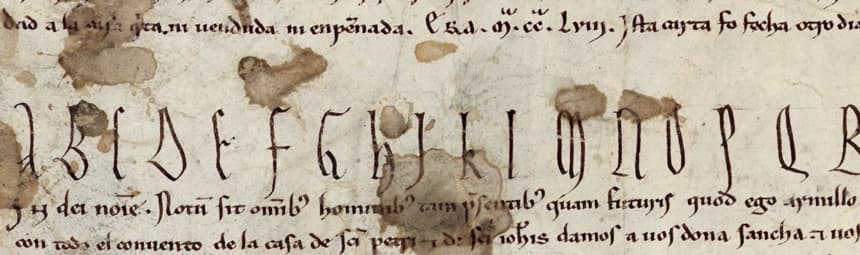 dad a la ni uenduda ni enpēnada. Era. Mͣ. CCͣ. Lviii. Jsta carta fo fecha otro dia
A B C D E F G H I K L M N O P Q R
In dei noīe. Notū sit om̄ibꝰ hominibꝰ tam p̄sentibꝰ quam futuris quod ego armillo
con todo el conuento de la casa de sc̄i petri ⁊ de sc̄i ioh̄is damos a uos dona sancha ⁊ uos